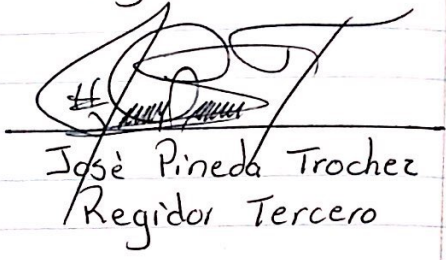 Josè Pineda Trochez
Regidor Tercero